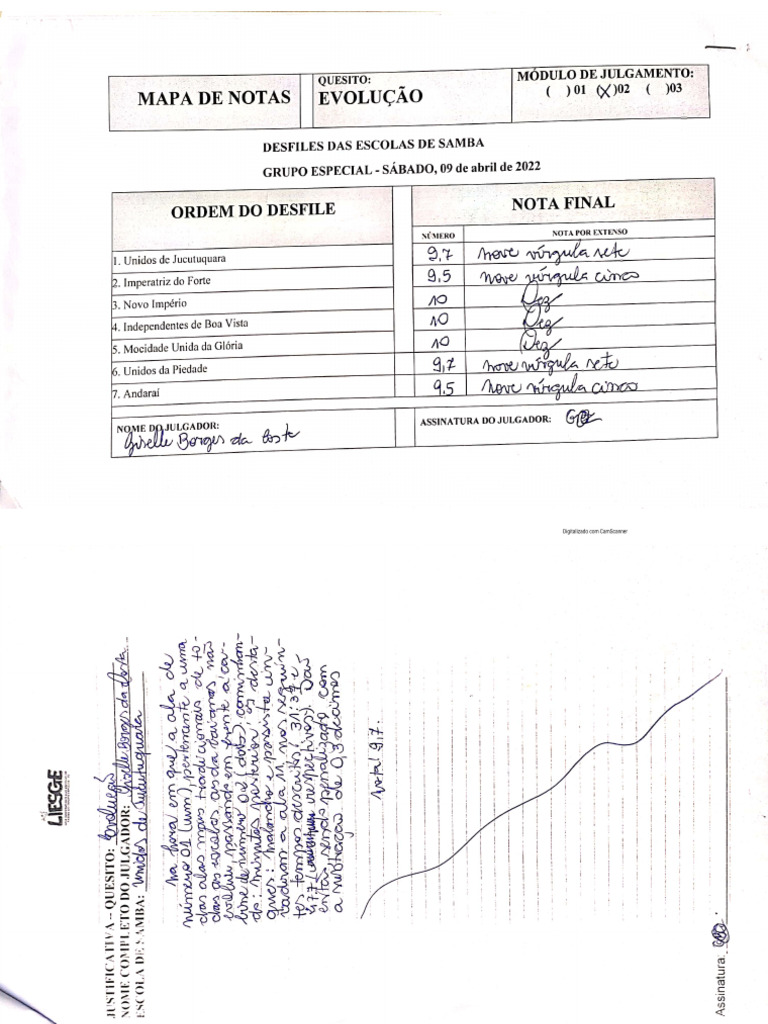 MAPA DE NOTAS
QUESITO:
EVOLUÇÃO
MÓDULO DE JULGAMENTO:
( ) 01 (X)02 ( )03
DESFILES DAS ESCOLAS DE SAMBA
GRUPO ESPECIAL - SÁBADO, 09 de abril de 2022
ORDEM DO DESFILE
NOTA FINAL
NÚMERO
NOTA POR EXTENSO
1. Unidos de Jucutuquara 9,7 nove vírgula sete
2. Imperatriz do Forte 9.5 nove vírgula cinco
3. Novo Império 10 Dez
4. Independentes de Boa Vista 10 Dez
5. Mocidade Unida da Glória 10 Dez
6. Unidos da Piedade 9,7 nove vírgula sete
7. Andaraí 9.5 nove vírgula cinco
NOME DO JULGADOR:
Giselle Borges da Costa
ASSINATURA DO JULGADOR:
Digitalizado com CamScanner
LIESGE
JUSTIFICATIVA – QUESITO: Evolução
NOME COMPLETO DO JULGADOR: Giselle Borges da Costa
ESCOLA DE SAMBA: Unidos de Jucutuquara
Na hora em que a ala de
número 01 (um), pertencente a uma
das alas mais tradicionais de to-
das as escolas, ala da baianas não
evoluiu, passando em frente a ca-
bine de número 02 (dois), caminhan-
do; minutos posterior os desta-
ques: malandro e passista in-
vadiram a ala 11, nos seguin-
tes tempos descritos, 31:37 e
respectivos). Das
sendo penalizado com
a subtração de 0,3 décimos
Nota! 9,7.
Assinatura: